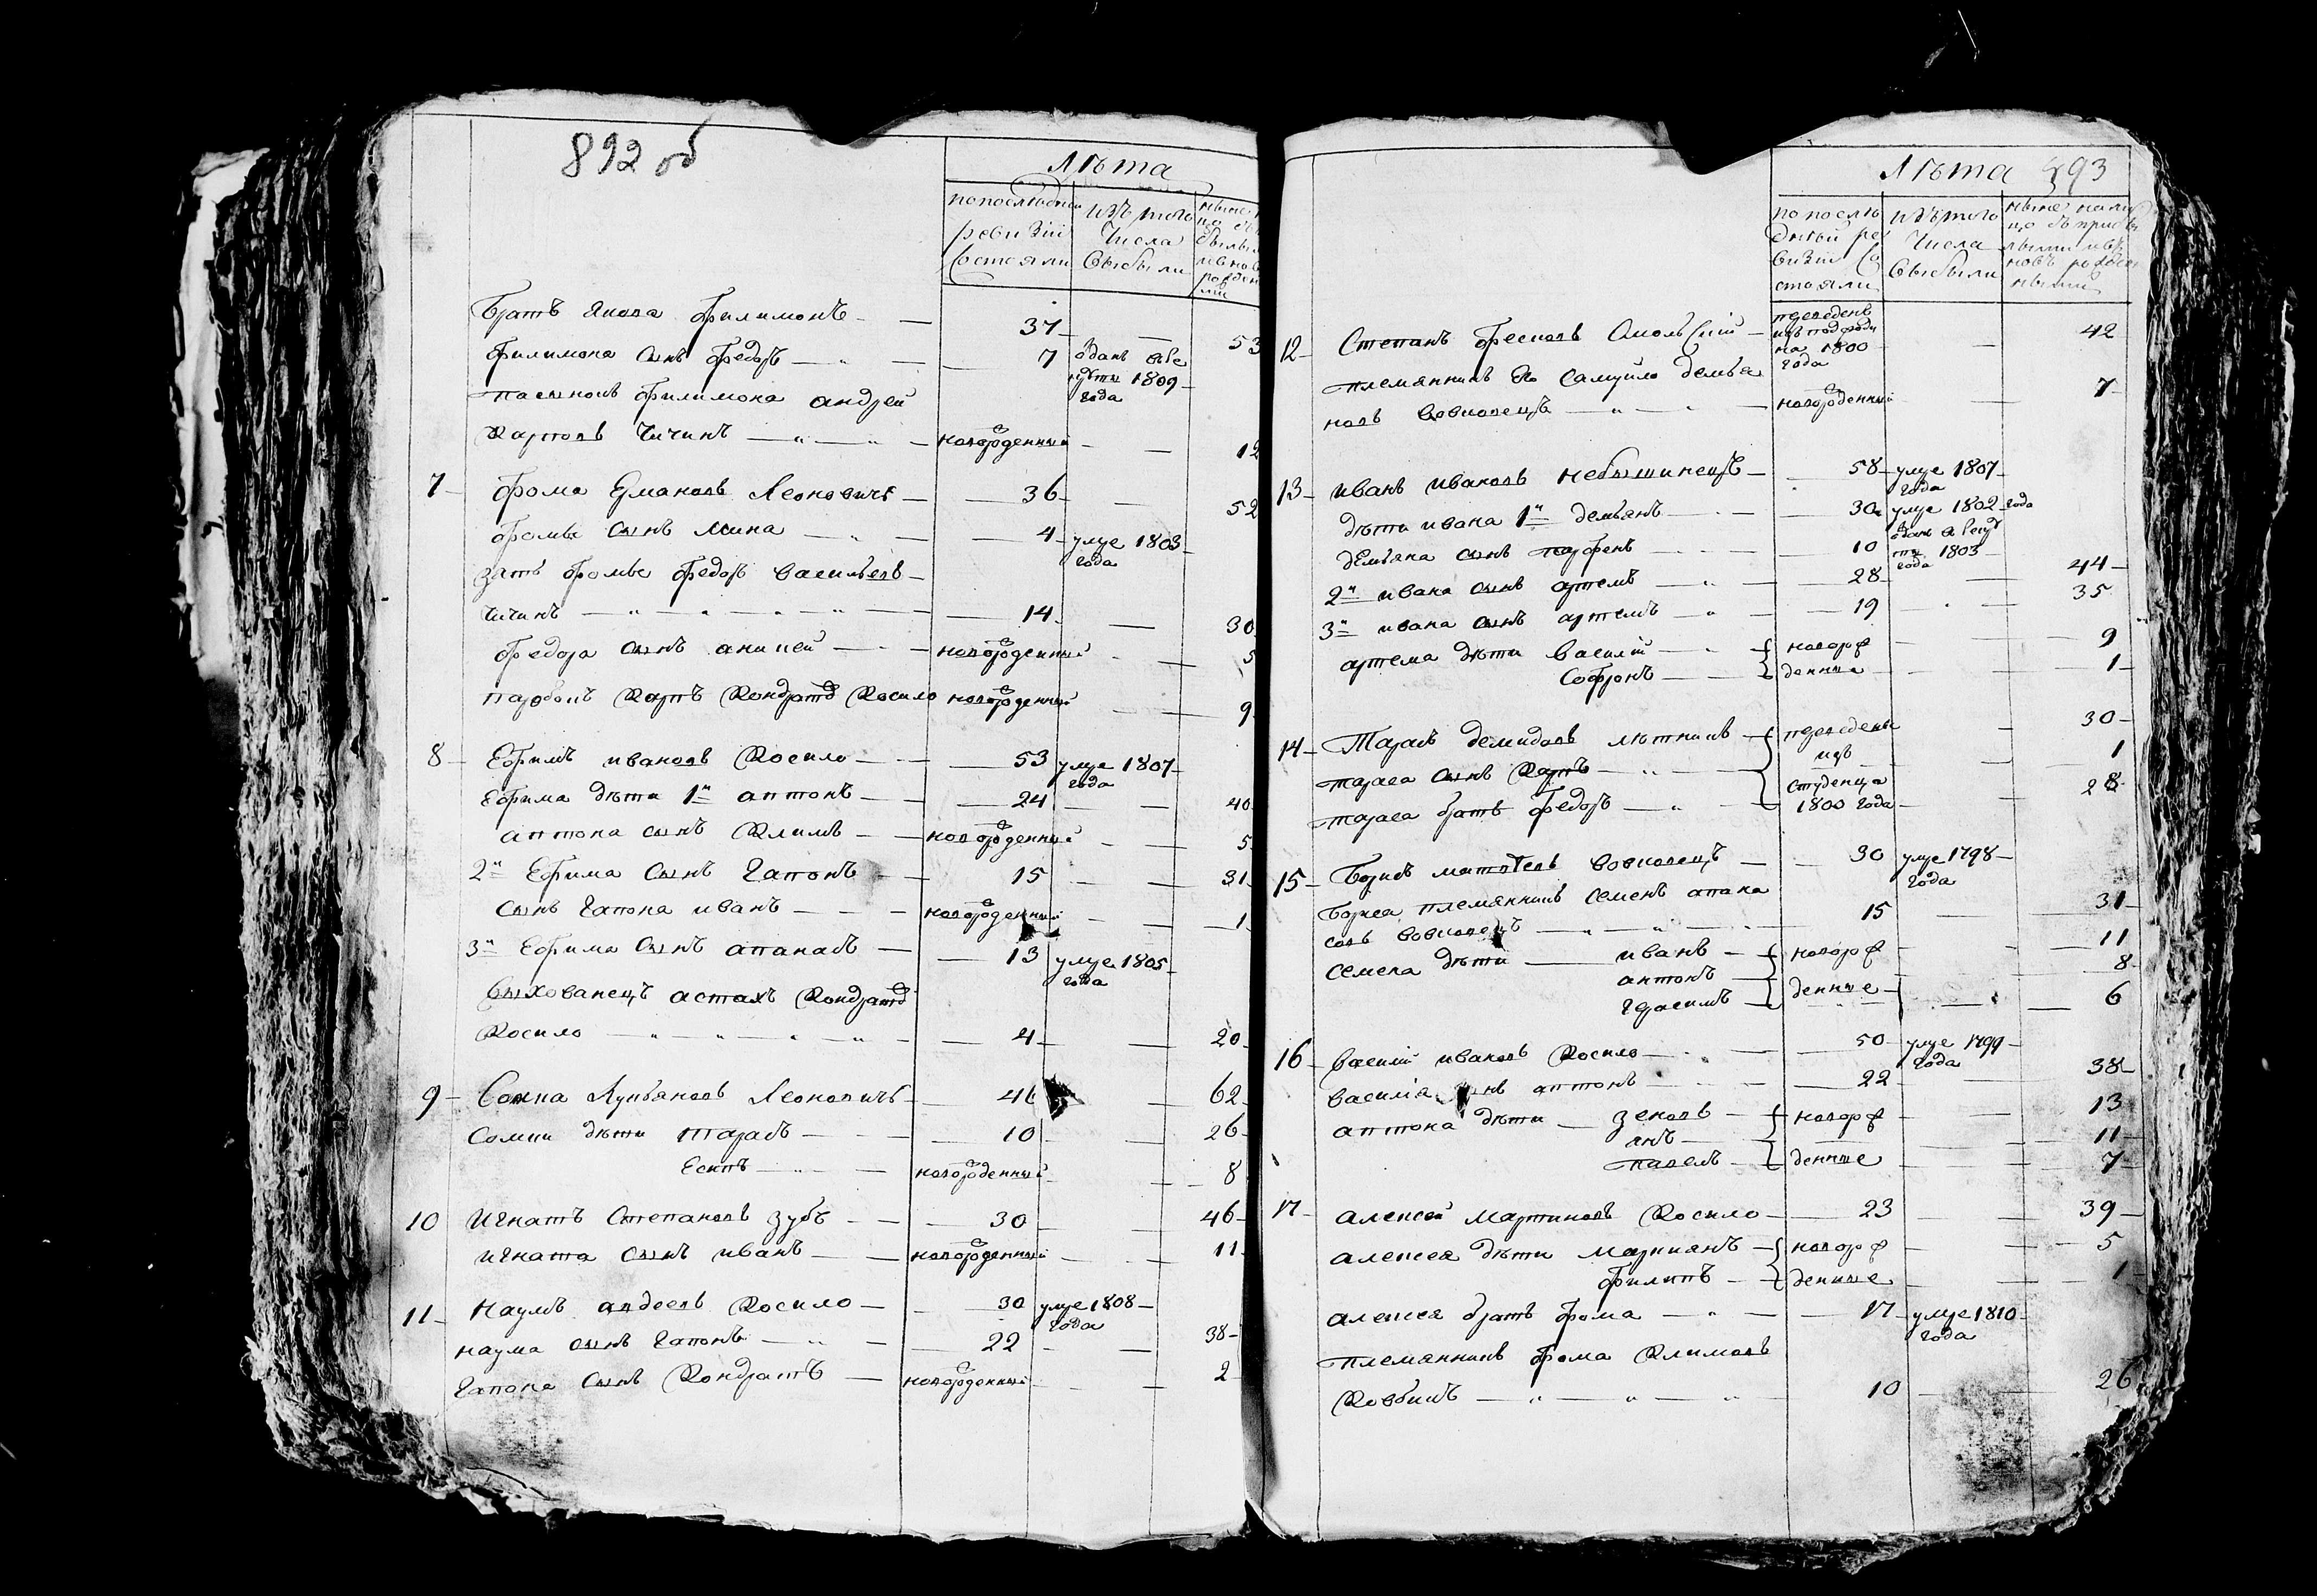 892 об
Лѣта
по последней ревизіи состояли
изъ того числа выбыли
Братъ Якова Филимонъ 37 53
Филимона сынъ Федоръ 7 1809 года
Пасынокъ Филимона андрей
Карповъ Чичинъ новорожденный 12
7 Фома Ермаковъ Леоновичъ 36 52
Фомы сынъ Мина 4 умре 1803 года
зять Фомы Федоръ Васильевъ
Чичинъ 14 30
Федора сынъ аникей новорожденный 5
Карпъ Кондратовъ Косило новорожденный 9
8 Ефимъ ивановъ Косило 53 умре 1807 года
Ефима дѣти 1й антонъ 24 40
антона сынъ Климъ новорожденный 5
2й Ефима сынъ Гапонъ 15 31
сынъ Гапона иванъ новорожденный 1
3й Ефима сынъ апанасъ 13 умре 1805 года
Выхованецъ астахъ Кондратовъ
Косило 4 20
9 Сопка Лукьяновъ Леоновичъ 46 62
дѣти Тарасъ 10 26
Есипъ новорожденный 8
10 Игнатъ Степановъ Зубъ 30 46
игната сынъ иванъ новорожденный 11
11 Наумъ авдеевъ Косило 30 умре 1808 года
наума сынъ Гапонъ 22 38
Гапона сынъ Кондратъ новорожденный 2
Лѣта 893
по последней ревизіи состояли
изъ того числа выбыли
12 Степанъ 1800 года 42
племянникъ его Самуйло Демья
новъ Вовковецъ новорожденный 7
13 иванъ ивановъ Небышинецъ 58 умре 1807 года
дѣти ивана 1й демьянъ 30 умре 1802 года
демьяна сынъ парфенъ 10 1803 года
2й ивана сынъ артемъ 28 44
3й ивана сынъ артемъ 19 35
артема дѣти Василій новорож 9
Софронъ денные 1
14 Тарасъ демидовъ лѣтникъ переведены 30
тараса сынъ Карпъ изъ 1
студенца
тараса братъ Федоръ 1800 года 28
15 Борисъ матвѣевъ Вовковецъ 30 умре 1798 года
Бориса племянникъ семенъ апана
совъ Вовковецъ 15 31
семена дѣти иванъ новорож 11
антонъ 8
герасимъ денные 6
16 Василій ивановъ Косило 50 умре 1799 года
василія сынъ антонъ 22 38
антона дѣти зеновъ новорож 13
янъ 11
павелъ денные 7
17 алексей мартиновъ Косило 23 39
алексея дѣти маркианъ новорож 5
филипъ денные 1
алексея братъ фома 17 умре 1810 года
племянникъ фома Климовъ
Ковбикъ 10 26